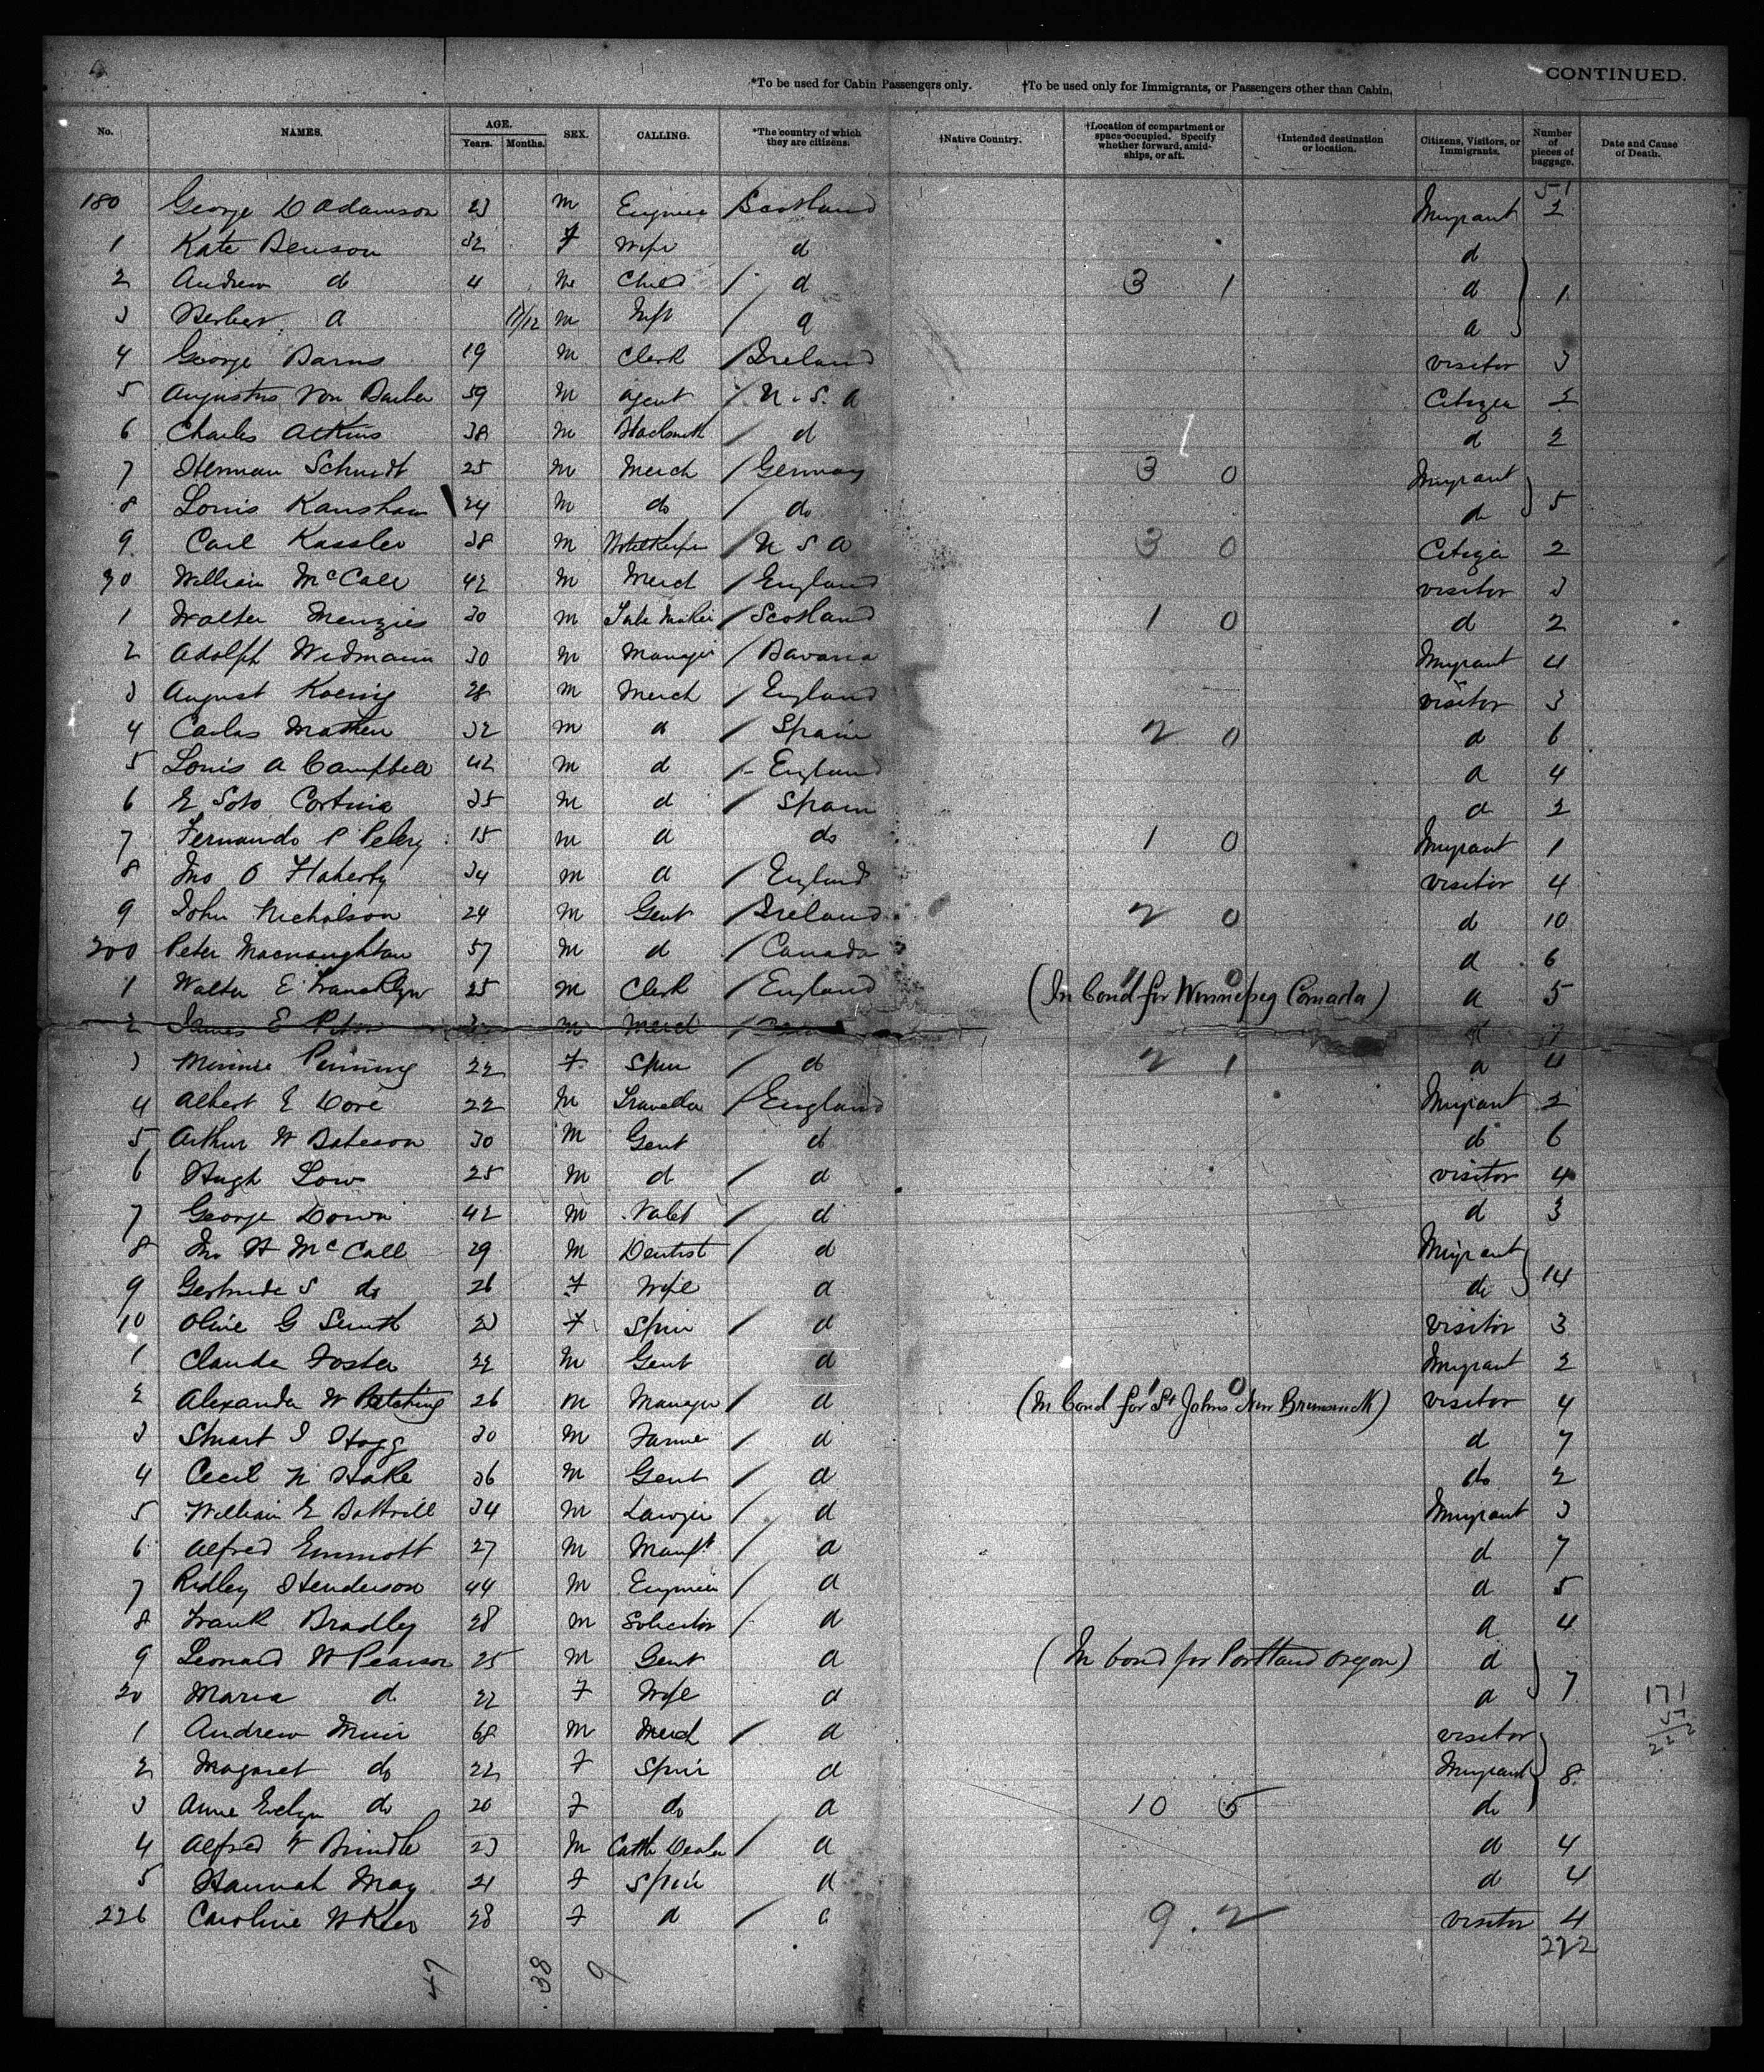 CONTINUED.
*To be used for Cabin Passengers only. †To be used only for Immigrants, or Passengers other than Cabin.
No. NAMES. AGE. Years. Months. SEX. CALLING. *The country of which they are citizens. †Native Country. †Location of compartment or space occupied. Specify whether forward, amidships, or aft. †Intended destination or location. Citizens, Visitors, or Immigrants. Number of pieces of baggage. Date and Cause of Death.
51
180 George D Adamson 23 M Scotland 2
1 Kate Benson 32 F Wife d d
2 Andrew do 4 M Child d 3 1 d 1
3 Herbert d 11/12 M Inft d d
4 George Barns 19 M Clerk Ireland visitor 3
5 Augustus Von 59 M agent U.S.A Citizen 2
6 Charles Atkins 38 M Blacksmith d d 2
7 Herman Schmidt 25 M Merch Germany 3 0
8 Louis 24 M do do d 5
9 Carl Kassler 38 M Hotelkeeper U S A 3 0 Citizen 2
90 William McCall 42 M Merch England visitor 3
1 Walter Menzies 30 M Scotland 1 0 d 2
2 Adolph Widmann 30 M Manager Bavaria 4
3 August Koenig 28 M Merch England visitor 3
4 Carlos 32 M d Spain 2 0 d 6
5 Louis A Campbell 42 M d England d 4
6 E Soto 35 M d Spain d 2
7 Fernando P 15 M d do 1 0 1
8 Jno O Flaherty 34 M d England visitor 4
9 John Nicholson 24 M Gent Ireland 2 0 d 10
200 Peter Macnaughtan 57 M d Canada d 6
1 Walter E 25 M Clerk England (In bond for Winnipeg Canada) d 5
2 James E M Merch
3 Minnie 22 F Spin d 2 1 d 4
4 Albert E Dore 22 M Traveller England 2
5 Arthur W Bateson 30 M Gent d d 6
6 Hugh Low 25 M d d visitor 4
7 George Down 42 M Valet d d 3
8 Jno H McCall 29 M Dentist d
9 Gertrude S do 26 F Wife d do 14
10 Olive G Smith 23 F Spin d visitor 3
1 Claude Foster 22 M Gent d 2
2 Alexander W 26 M Manager d (In bond for St Johns New Brunswick) visitor 4
3 Stuart I Hogg 30 M Farmer d d 7
4 Cecil N Hake 36 M Gent d do 2
5 William E Bottrill 34 M Lawyer d 3
6 Alfred Emmott 27 M Manuft d d 7
7 Ridley Henderson 44 M Engineer d d 5
8 Frank Bradley 28 M Solicitor d d 4
9 Leonard W Pearson 25 M Gent d (In bond for Portland Oregon) d
20 Maria d 22 F Wife d d 7
1 Andrew Muir 68 M Merch d visitor
2 Magaret do 22 F Spin d 8
3 Anne Evelyn do 20 F do d 10 5 do
4 Alfred W Brindle 23 M Cattle Dealer d d 4
5 Hannah May 21 F Spin d d 4
226 Caroline W 28 F d d 9.2 visitor 4
222
47 38 9
171
51
222